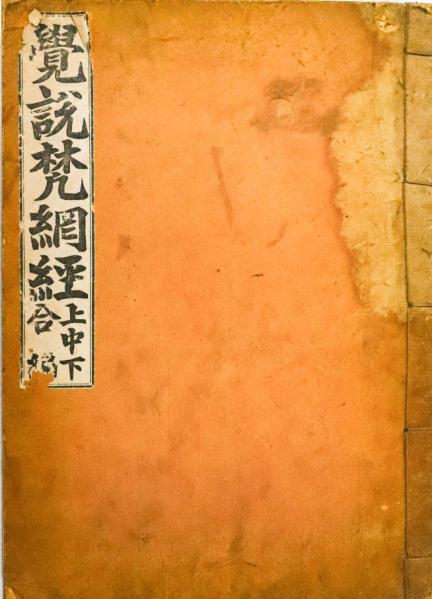 覺說梵網經
上中下
合編